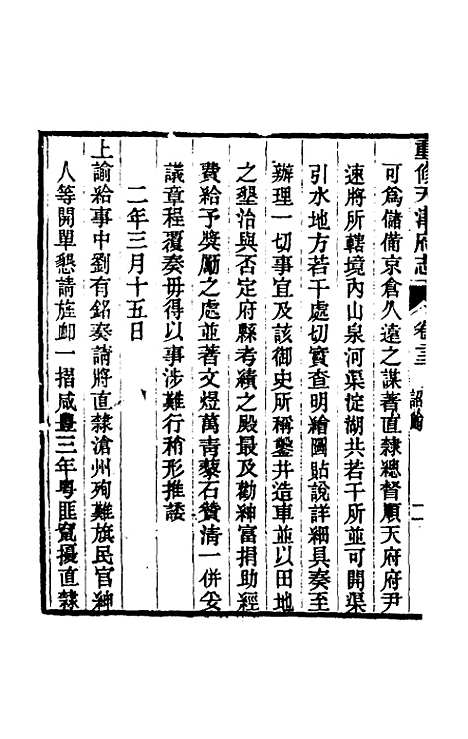 重修天津府志 卷三 詔諭 二
可爲儲備京倉久遠之謀著直隸總督順天府府尹
速將所轄境內山泉河渠淀湖共若干所並可開渠
引水地方若干處切實查明繪圖貼說詳細具奏至
辦理一切事宜及該御史所稱鑿井造車並以田地
之墾治與否定府縣考績之殿最及勸紳富捐助經
費給予獎勵之處並著文煜萬青藜石贊清一併妥
議章程覆奏毋得以事涉難行稍形推諉
二年三月十五日
上諭給事中劉有銘奏請將直隸滄州殉難旗民官紳
人等開單懇請旌卹一摺咸豐三年粵匪竄擾直隸